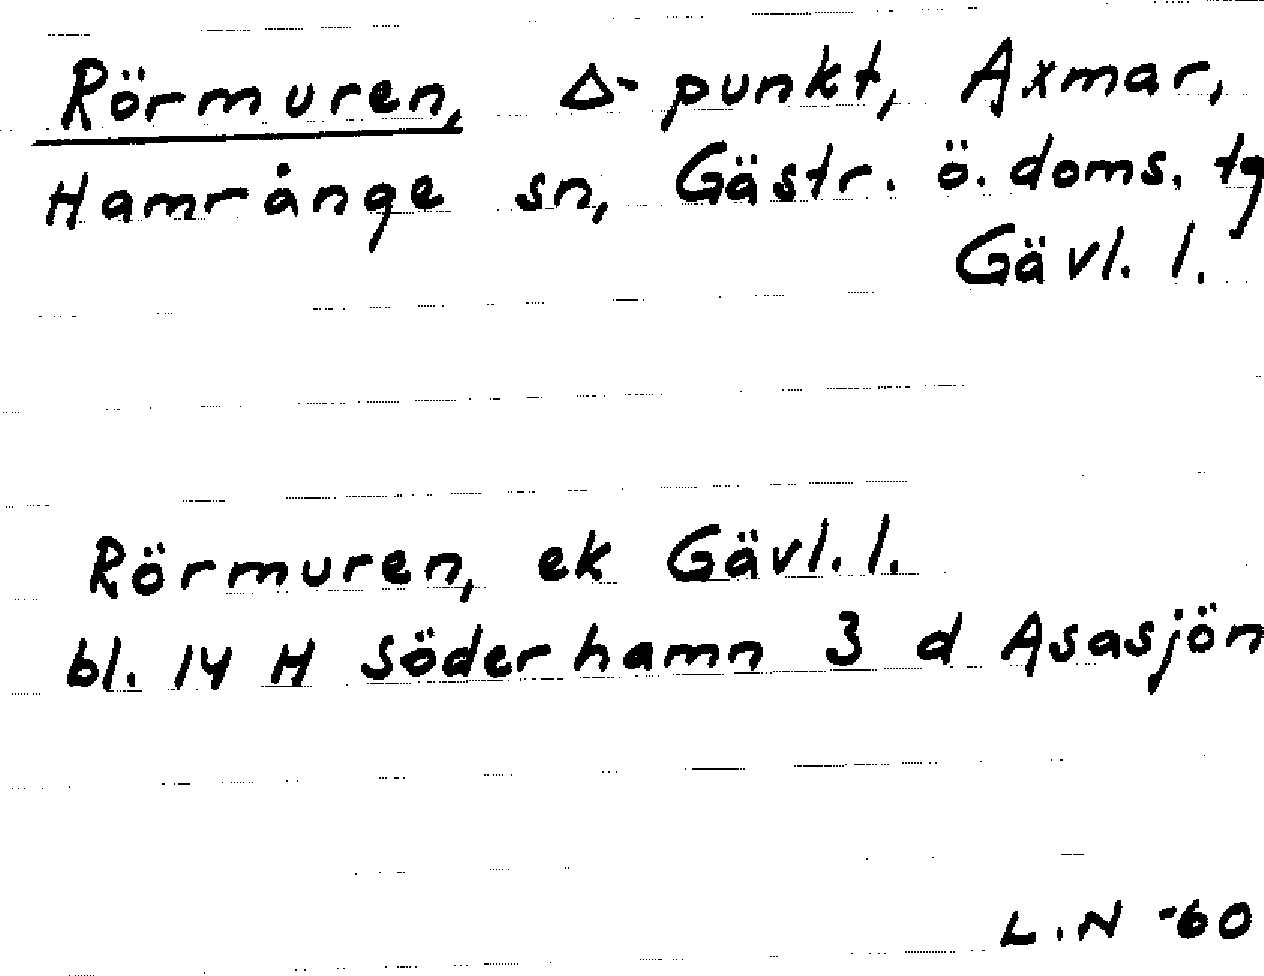 Rörmuren, Δ-punkt, Axmar,
Hamrånge sn, Gästr. ö. doms. tg
Gävl. l.
Rörmuren, ek Gävl. l.
bl. 14 H Söderhamn 3 d Asasjön
L.N -60